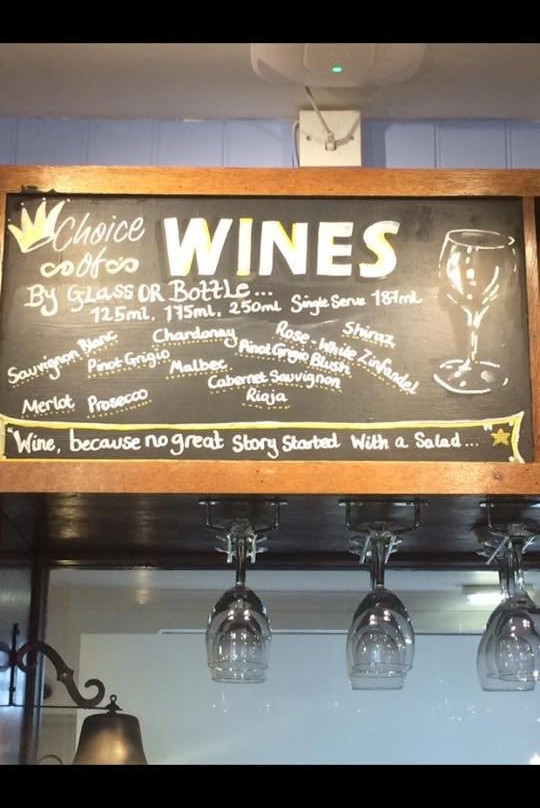 Choice
of
WINES
By Glass OR Bottle...
125ml, 175ml, 250ml Single Serve 187ml
Sauvignon Blanc
Chardonay
Rose - White Zinfandel
Shiraz
Pinot Grigio
Pinot Grigio Blush
Malbec
Cabernet Sauvignon
Merlot
Prosecco
Rioja
"Wine, because no great Story Started With a Salad...